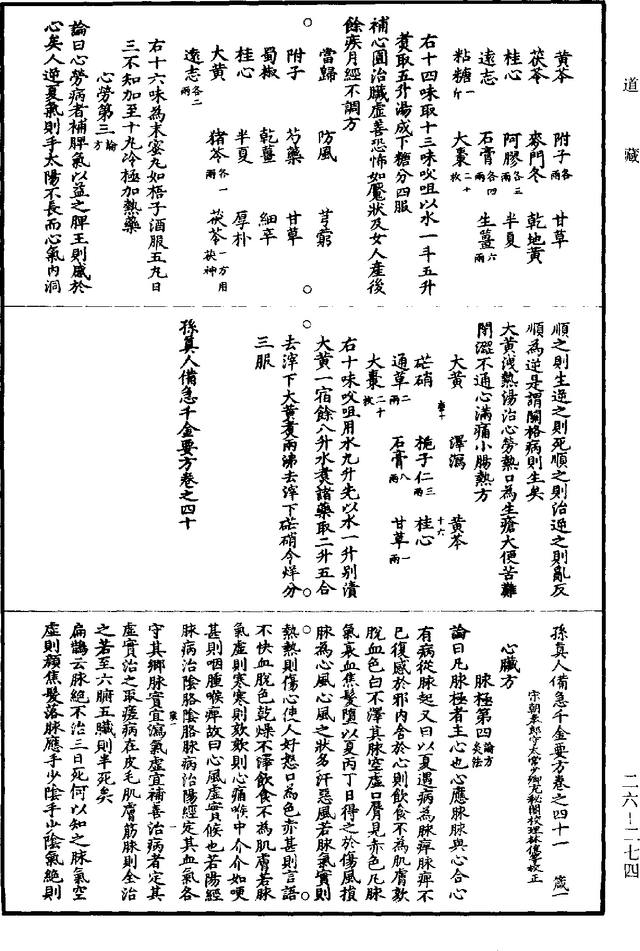 道藏
黃芩 附子各一兩 甘草
茯苓 麥門冬 乾地黃
桂心 阿膠各三兩 半夏
遠志 石膏各四兩 生薑六兩
粘糖一斤 大棗二十枚
右十四味取十三味㕮咀以水一斗五升
煑取五升湯成下糖分四服
補心圓治臟虛善恐怖如魘狀及女人產後
餘疾月經不調方
當歸 防風 芎藭
附子 芍藥 甘草
蜀椒 乾薑 細辛
桂心 半夏 厚朴
大黃 猪苓各一兩 茯苓一方用茯神
遠志各二兩
右十六味為末蜜丸如梧子酒服五丸日
三不知加至十丸冷極加熱藥
心勞第三論方
論曰心勞病者補脾氣以益之脾王則感於
心矣人逆夏氣則手太陽不長而心氣內洞
順之則生逆之則死順之則治逆之則亂反
順為逆是謂關格病則生矣
大黃洩熱湯治心勞熱口為生瘡大便苦難
閉澀不通心滿痛小腸熱方
大黃 澤瀉 黃芩
芒硝 梔子仁三兩 桂心
通草二兩 石膏八兩 甘草一兩
大棗二十枚
右十味㕮咀用水九升先以水一升別漬
大黃一宿餘八升水煑諸藥取二升五合
去滓下大黃煑兩沸去滓下芒硝令烊分
三服
孫真人備急千金要方卷之四十
孫真人備急千金要方卷之四十一 歲一
宋朝奉郎守太常少卿充秘閣校理林億等校正
心臟方
脉極第四論方灸法
論曰凡脉極者主心也心應脉脉與心合心
有病從脉起又曰以夏遇病為脉痺脉痺不
已復感於邪內舍於心則飲食不為肌膚欬
脫血色白不澤其脉空虛口脣見赤色凡脉
氣衰血焦髮墮以夏丙丁日得之於傷風損
脉為心風心風之狀多汗惡風若脉氣實則
熱熱則傷心使人好怒口為色赤甚則言語
不快血脫色乾燥不澤飲食不為肌膚若脉
氣虛則寒寒則欬欬則心痛喉中介介如哽
甚則咽腫喉痺故曰心風虛實候也若陽經
脉病治陰胳陰胳脉病治陽經定其血氣各
守其鄉脉實宜瀉氣虛宜補善治病者定其
虛實治之取痊病在皮毛肌膚筋脉則全治
之若至六腑五臟則半死矣
扁鵲云脉絕不治三日死何以知之脉氣空
虛則顏焦髮落脉應手少陰手少陰氣絕則
二六—二七四